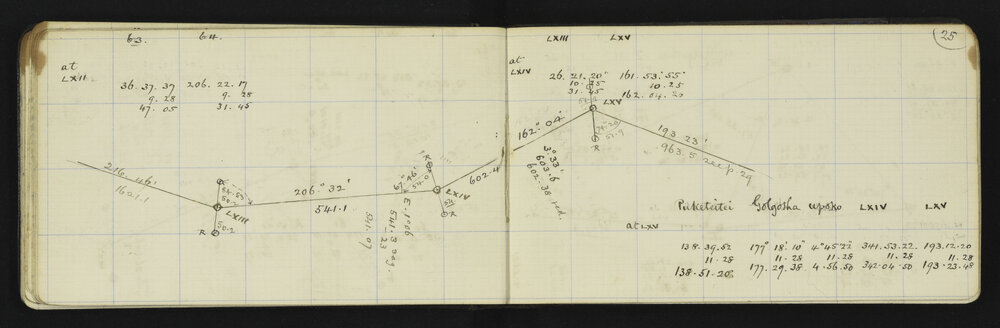 63. 64.
at
LXII
36. 37. 37 206. 22. 17
9. 28 9. 28
47. 05 31. 45
216. 46'
1601.1
LXIII
50.2
R
206.° 32'
541.1
R
LXIV
R
E. 1°06
541.07
25
LXIII LXV
at
LXIV
26. 21. 20" 161. 53.' 55"
10. 25 10. 25
31. 45 162. 04. 20
162.° 04'
602.4
3.° 33'
603.6
602.38 red.
LXV
51.9
R
193. 23'
963.5 see p. 29
Puketeitei Golgotha upoko LXIV LXV
at LXV
138. 39. 52 177° 18' 10" 4° 45' 22" 341. 53. 22. 193. 12. 20
11. 28 11. 28 11. 28 11. 28 11. 28
138. 51. 20 177. 29. 38 4. 56. 50 342. 04. 50 193. 23. 48